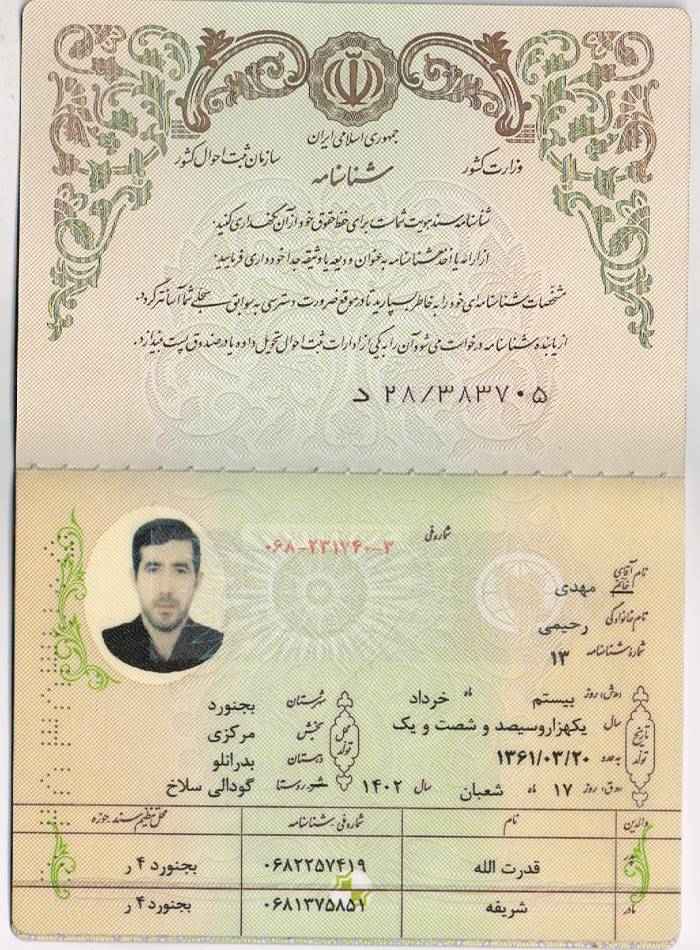 جمهوری اسلامی ایران
وزارت کشور
سازمان ثبت احوال کشور
شناسنامه
شناسنامه سند هویت شماست برای حفظ حقوق خود از آن نگهداری کنید.
از ارائه یا اخذ شناسنامه به عنوان ودیعه یا وثیقه جدا خودداری فرمایید.
مشخصات شناسنامه‌ای خود را به خاطر بسپارید تا در موقع ضرورت دسترسی به سوابق سجلی شما آسانتر گردد.
از یابنده شناسنامه درخواست می‌شود آن را به یکی از ادارات ثبت احوال تحویل داده یا در صندوق پست بیندازد.
د ۲۸/۳۸۳۷۰۵
شماره ملی ۰۶۸-۲۳۱۷۴۰-۳
نام آقای خانم مهدی
نام خانوادگی رحیمی
شماره شناسنامه ۱۳
تاریخ تولد
(ه‍.ش) روز بیستم ماه خرداد
سال یکهزاروسیصد و شصت و یک
به عدد ۱۳۶۱/۰۳/۲۰
(ه‍.ق) روز ۱۷ ماه شعبان سال ۱۴۰۲
محل تولد
شهرستان بجنورد
بخش مرکزی
دهستان بدرانلو
شهر روستا گودالی سلاخ
والدین نام شماره ملی-شناسنامه محل تنظیم سند-حوزه
پدر قدرت الله ۰۶۸۲۲۵۷۴۱۹ بجنورد ۴ ر
مادر شریفه ۰۶۸۱۳۷۵۸۵۱ بجنورد ۴ ر